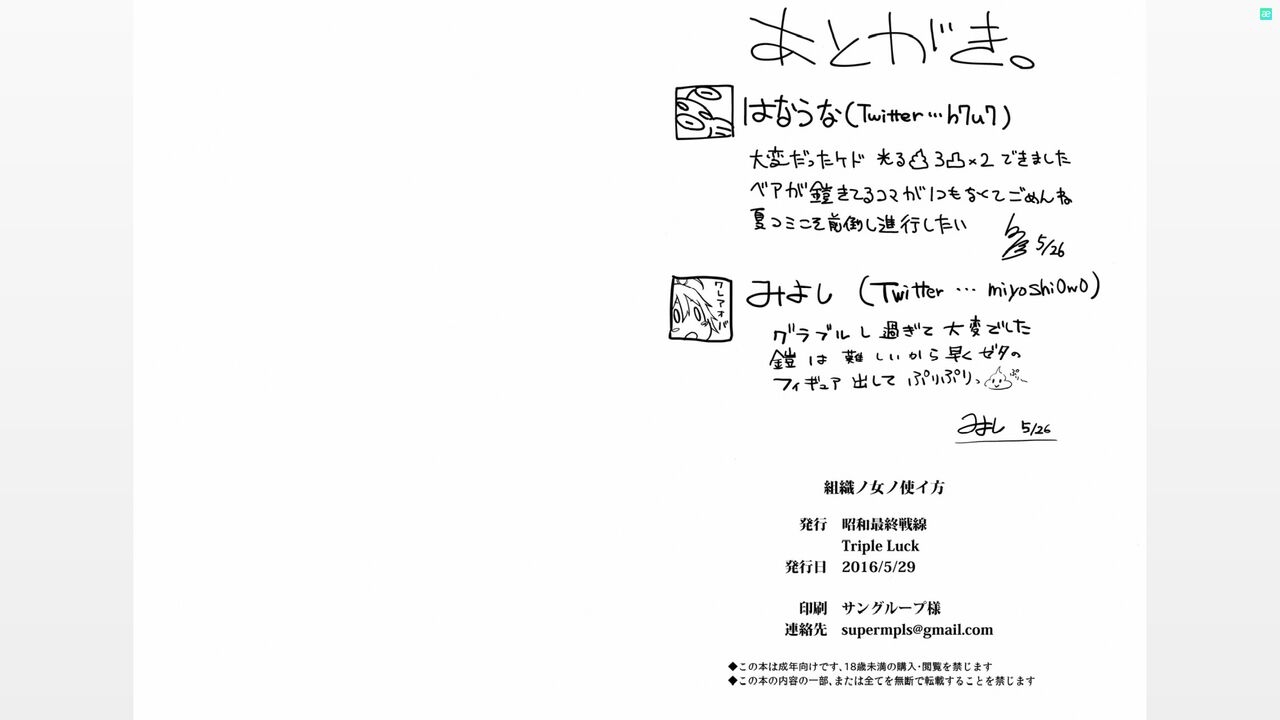 あとがき。
はならな(Twitter…h7u7)
大変だったケド 光る凸3凸×2 できました
ベアが鎧きてるコマが1つもなくてごめんね
夏コミこそ前倒し進行したい
5/26
クレアオバ
みよし (Twitter … miyoshi0w0)
グラブルし過ぎて大変でした
鎧は難しいから早くゼタの
フィギュア出して ぷりぷりっ
ぷりー
みよし 5/26
組織ノ女ノ使イ方
発行 昭和最終戦線
Triple Luck
発行日 2016/5/29
印刷 サングループ様
連絡先 supermpls@gmail.com
◆この本は成年向けです、18歳未満の購入・閲覧を禁じます
◆この本の内容の一部、または全てを無断で転載することを禁じます